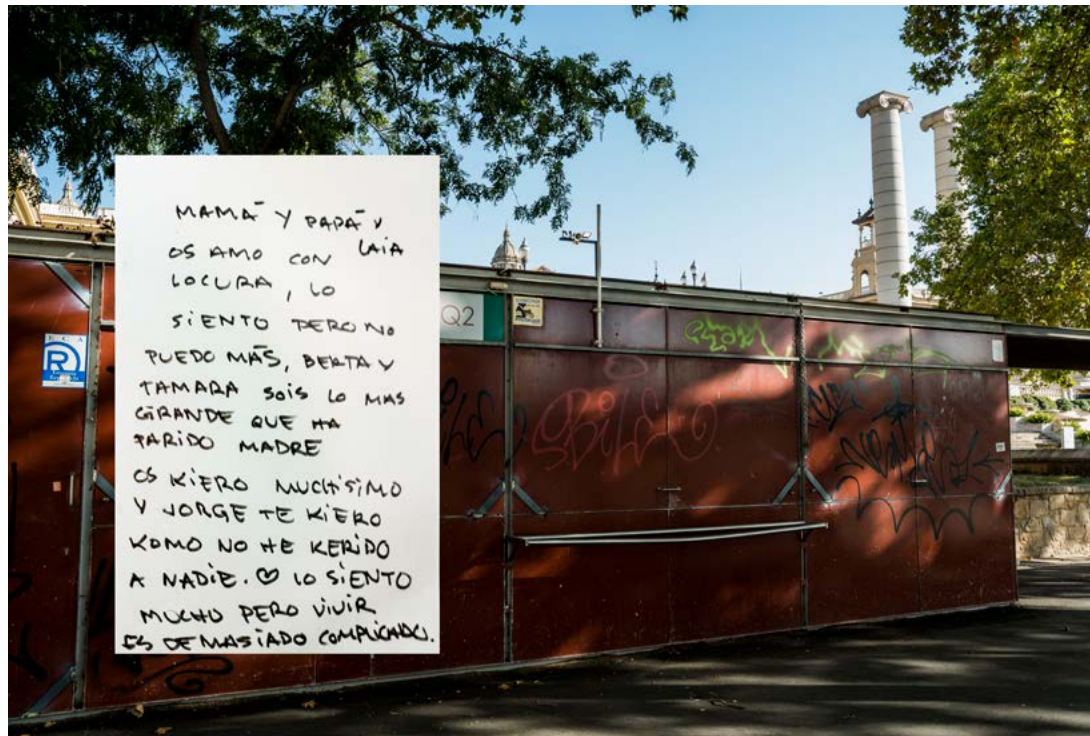 MAMÁ Y PAPÁ Y
LAIA
OS AMO CON
LOCURA, LO
SIENTO PERO NO
PUEDO MÁS, BERTA Y
TAMARA SOIS LO MAS
GRANDE QUE HA
PARIDO MADRE
OS KIERO MUCHÍSIMO
Y JORGE TE KIERO
KOMO NO HE KERIDO
A NADIE. ♡ LO SIENTO
MUCHO PERO VIVIR
ES DEMASIADO COMPLICADO.
Q2
R